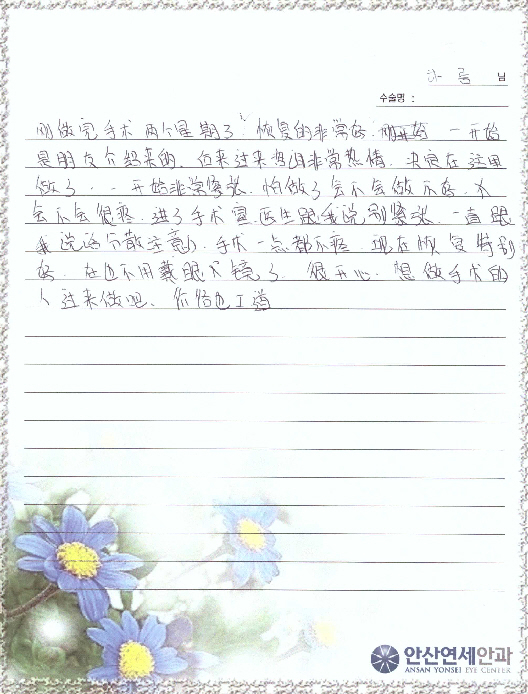 님
수술명 :
刚做完手术两个星期了 恢复的非常好. 一开始
是朋友介绍来的. 后来过来 非常热情. 决定在这里
做了. 一开始非常紧张. 怕做了会不会做不好. 又
会不会很疼. 进了手术室医生跟我说别紧张. 一直跟
我说话分散注意力. 手术一点都不疼. 现在恢复特别
好. 在也不用戴眼镜了. 很开心. 想做手术的
人过来做吧.
안산연세안과
ANSAN YONSEI EYE CENTER